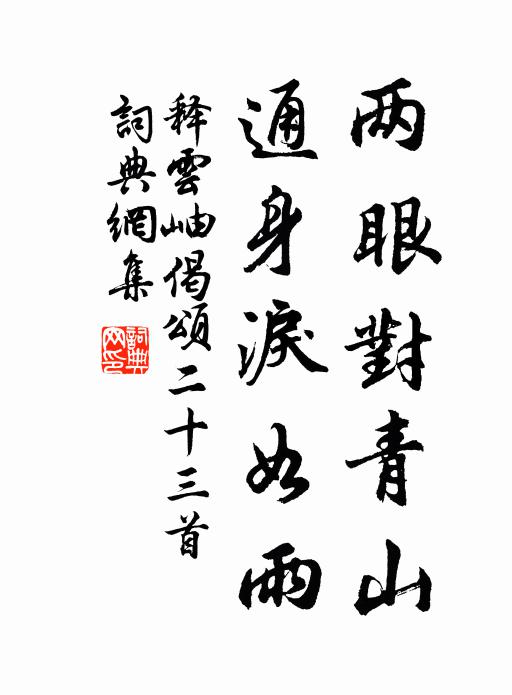 两眼對青山
通身淚如雨
释雲岫偈頌二十三首
詞典網集
詞典
网印